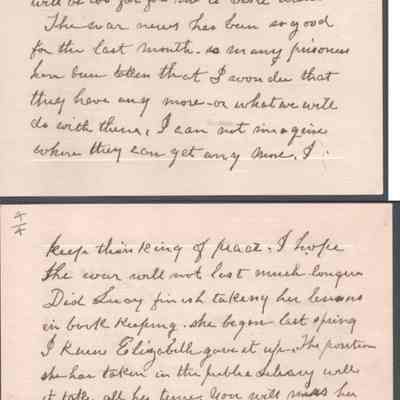 will be too far for me to
The war news has been so good
for the last month - so many prisoners
have been taken that I wonder that
they have any more - or what we will
do with them, I can not imagine
where they can get any more. I
4/4
keep thinking of peace. I hope
the war will not last much longer
Did Lucy finish taking her lessons
in book keeping. she began last spring
I knew Elizabeth gave it up. The position
she has taken in the public Library will
it take all her time. You will miss her